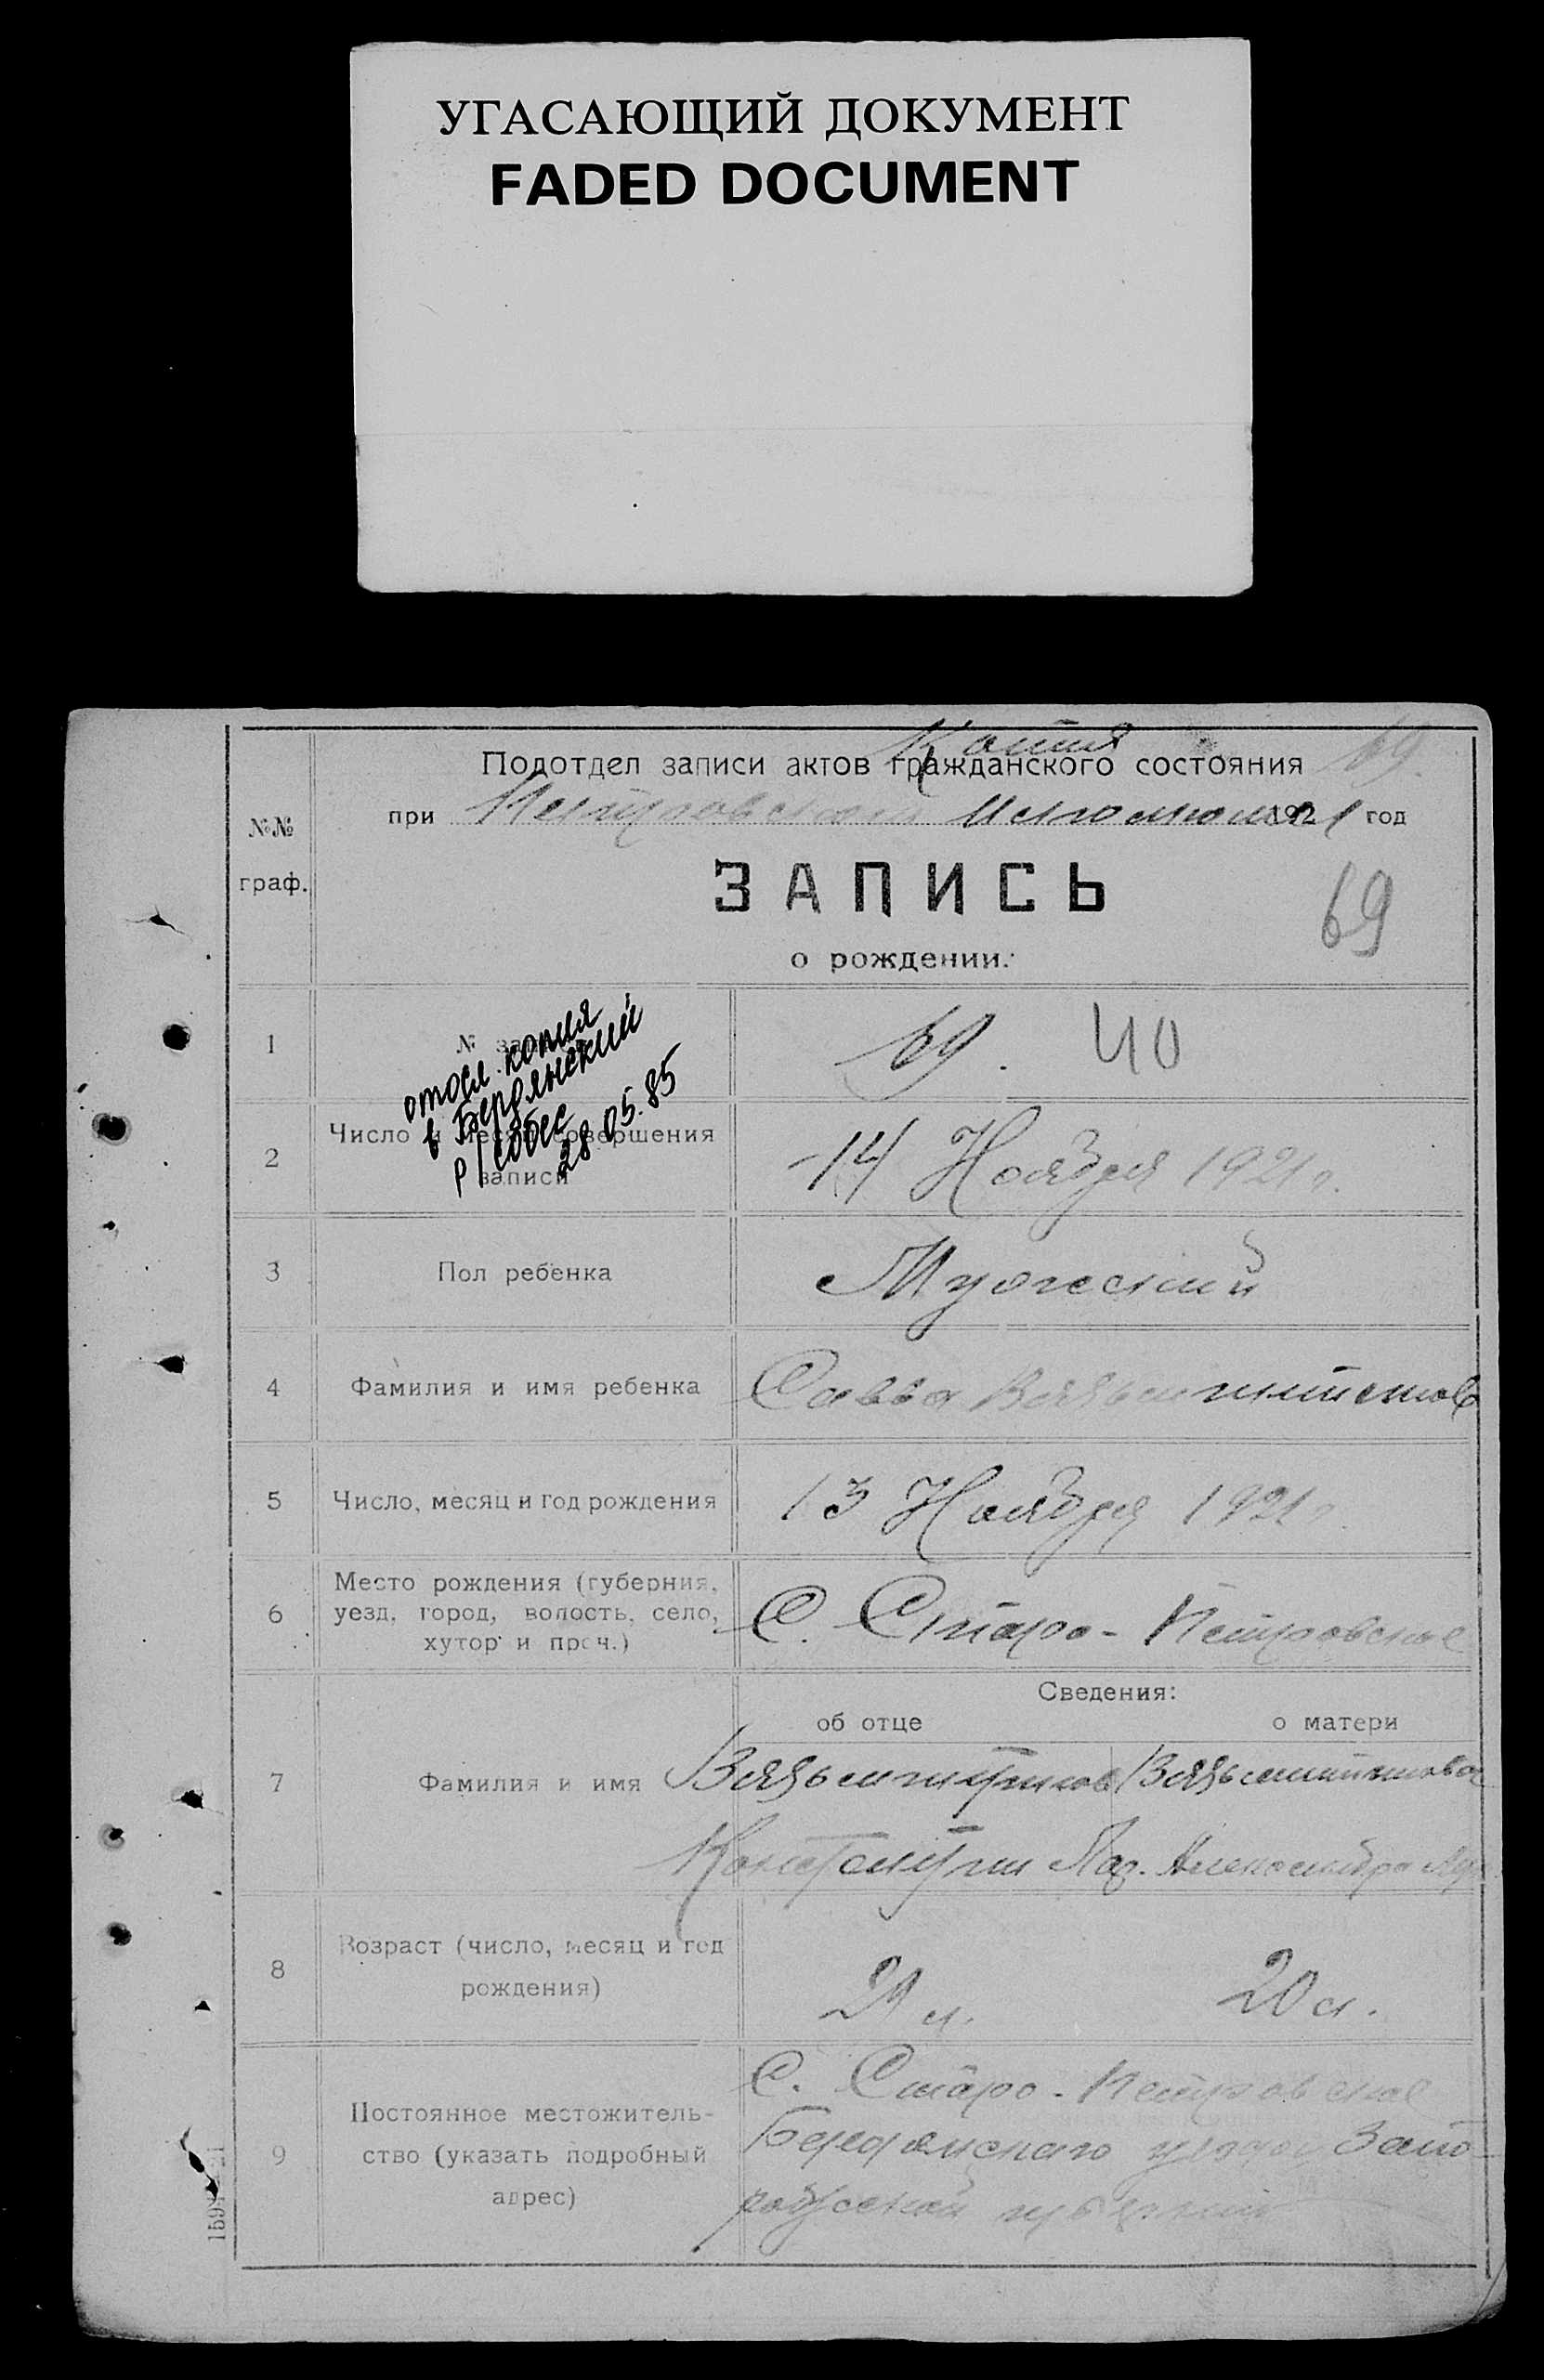 УГАСАЮЩИЙ ДОКУМЕНТ
FADED DOCUMENT
Копия
Подотдел записи актов гражданского состояния 69.
при Петровском 1921 год
№№
граф.
ЗАПИСЬ
69
о рождении.
1 № записи 69. 40
отосл. копия
в Бердянский
р/собес
28.05.85
2 Число и месяц совершения
записи
14 Ноября 1921 г.
3 Пол ребенка Мужеский
4 Фамилия и имя ребенка Савва
5 Число, месяц и год рождения 13 Ноября 1921 г.
6 Место рождения (губерния,
уезд, город, волость, село,
хутор и проч.)
С. Старо-Петровское
Сведения:
об отце о матери
7 Фамилия и имя
Александра
8 Возраст (число, месяц и год
рождения)
л. 20 л.
9 Постоянное местожитель-
ство (указать подробный
адрес)
С. Старо-Петровское
Бердянского уезда Запо-
рожской губернии